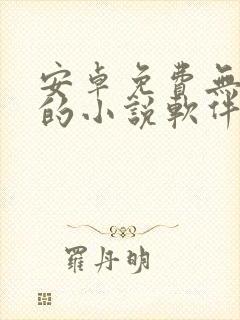 安卓免費無
的小說軟件
羅丹明